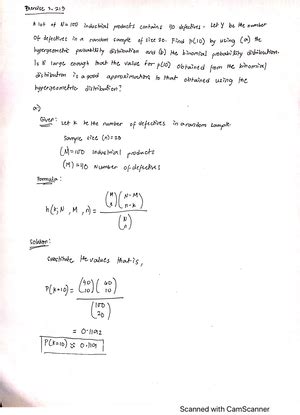 A lot of N=100 industrial products contains 40 defectives. Let Y be the number
of defectives in a random sample of size 20. Find p(10) by using (a) the
hypergeometric probability distribution and (b) the binomial probability distribution.
Is N large enough that the value for p(10) obtained from the binomial
distribution is a good approximation to that obtained using the
hypergeometric distribution?
a)
Given: Let X be the number of defectives in a random sample
Sample size (n)=20
(N)=100 Industrial products
(M)=40 Number of defectives
Formula:
h(x; N, M, n) = (M x)(N-M n-x) / (N n)
Solution:
Substitute the values that is,
P(X=10) = (40 10)(60 10) / (100 20)
= 0.1192
Scanned with CamScanner